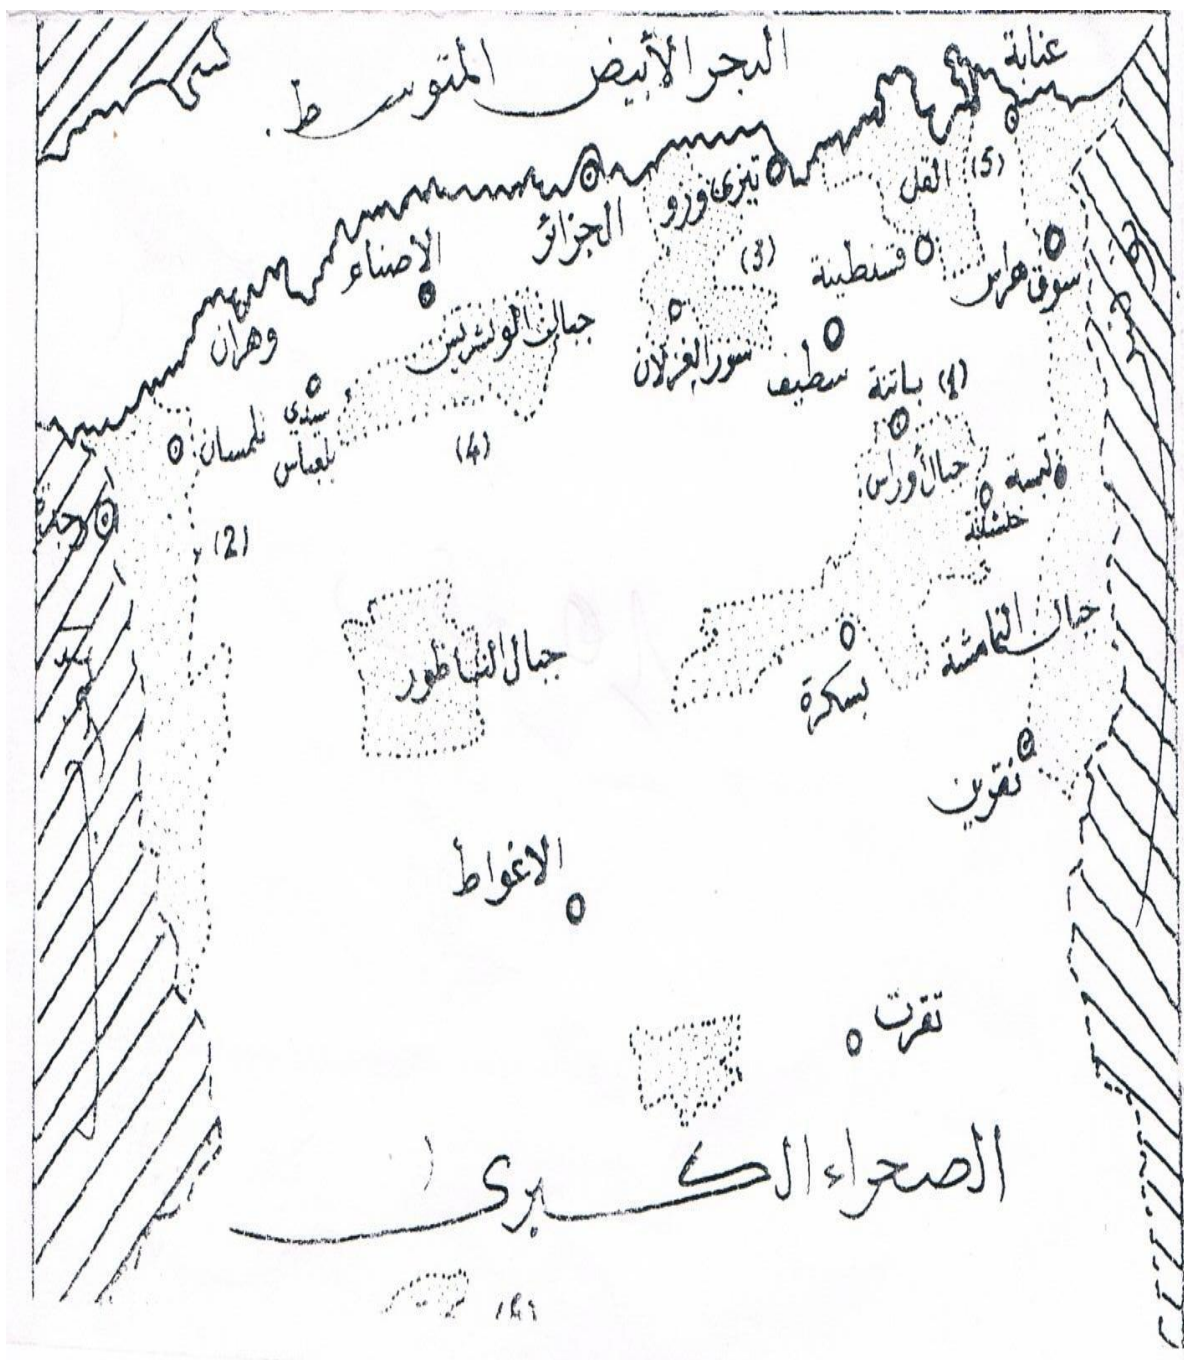 البحر الأبيض المتوسط.
عنابة
القل
(5)
تيزي وزو
الجزائر
الاصنام
(3)
قسنطينة
سوق هراس
وهران
جبال الونشريس
سور الغزلان
سطيف
باتنة
(1)
سيدي
بلعباس
تلمسان
(4)
جبال أوراس
تبسة
خنشلة
(2)
جبال الناظور
جبال النمامشة
بسكرة
نقرين
الاغواط
تقرت
الصحراء الكبرى